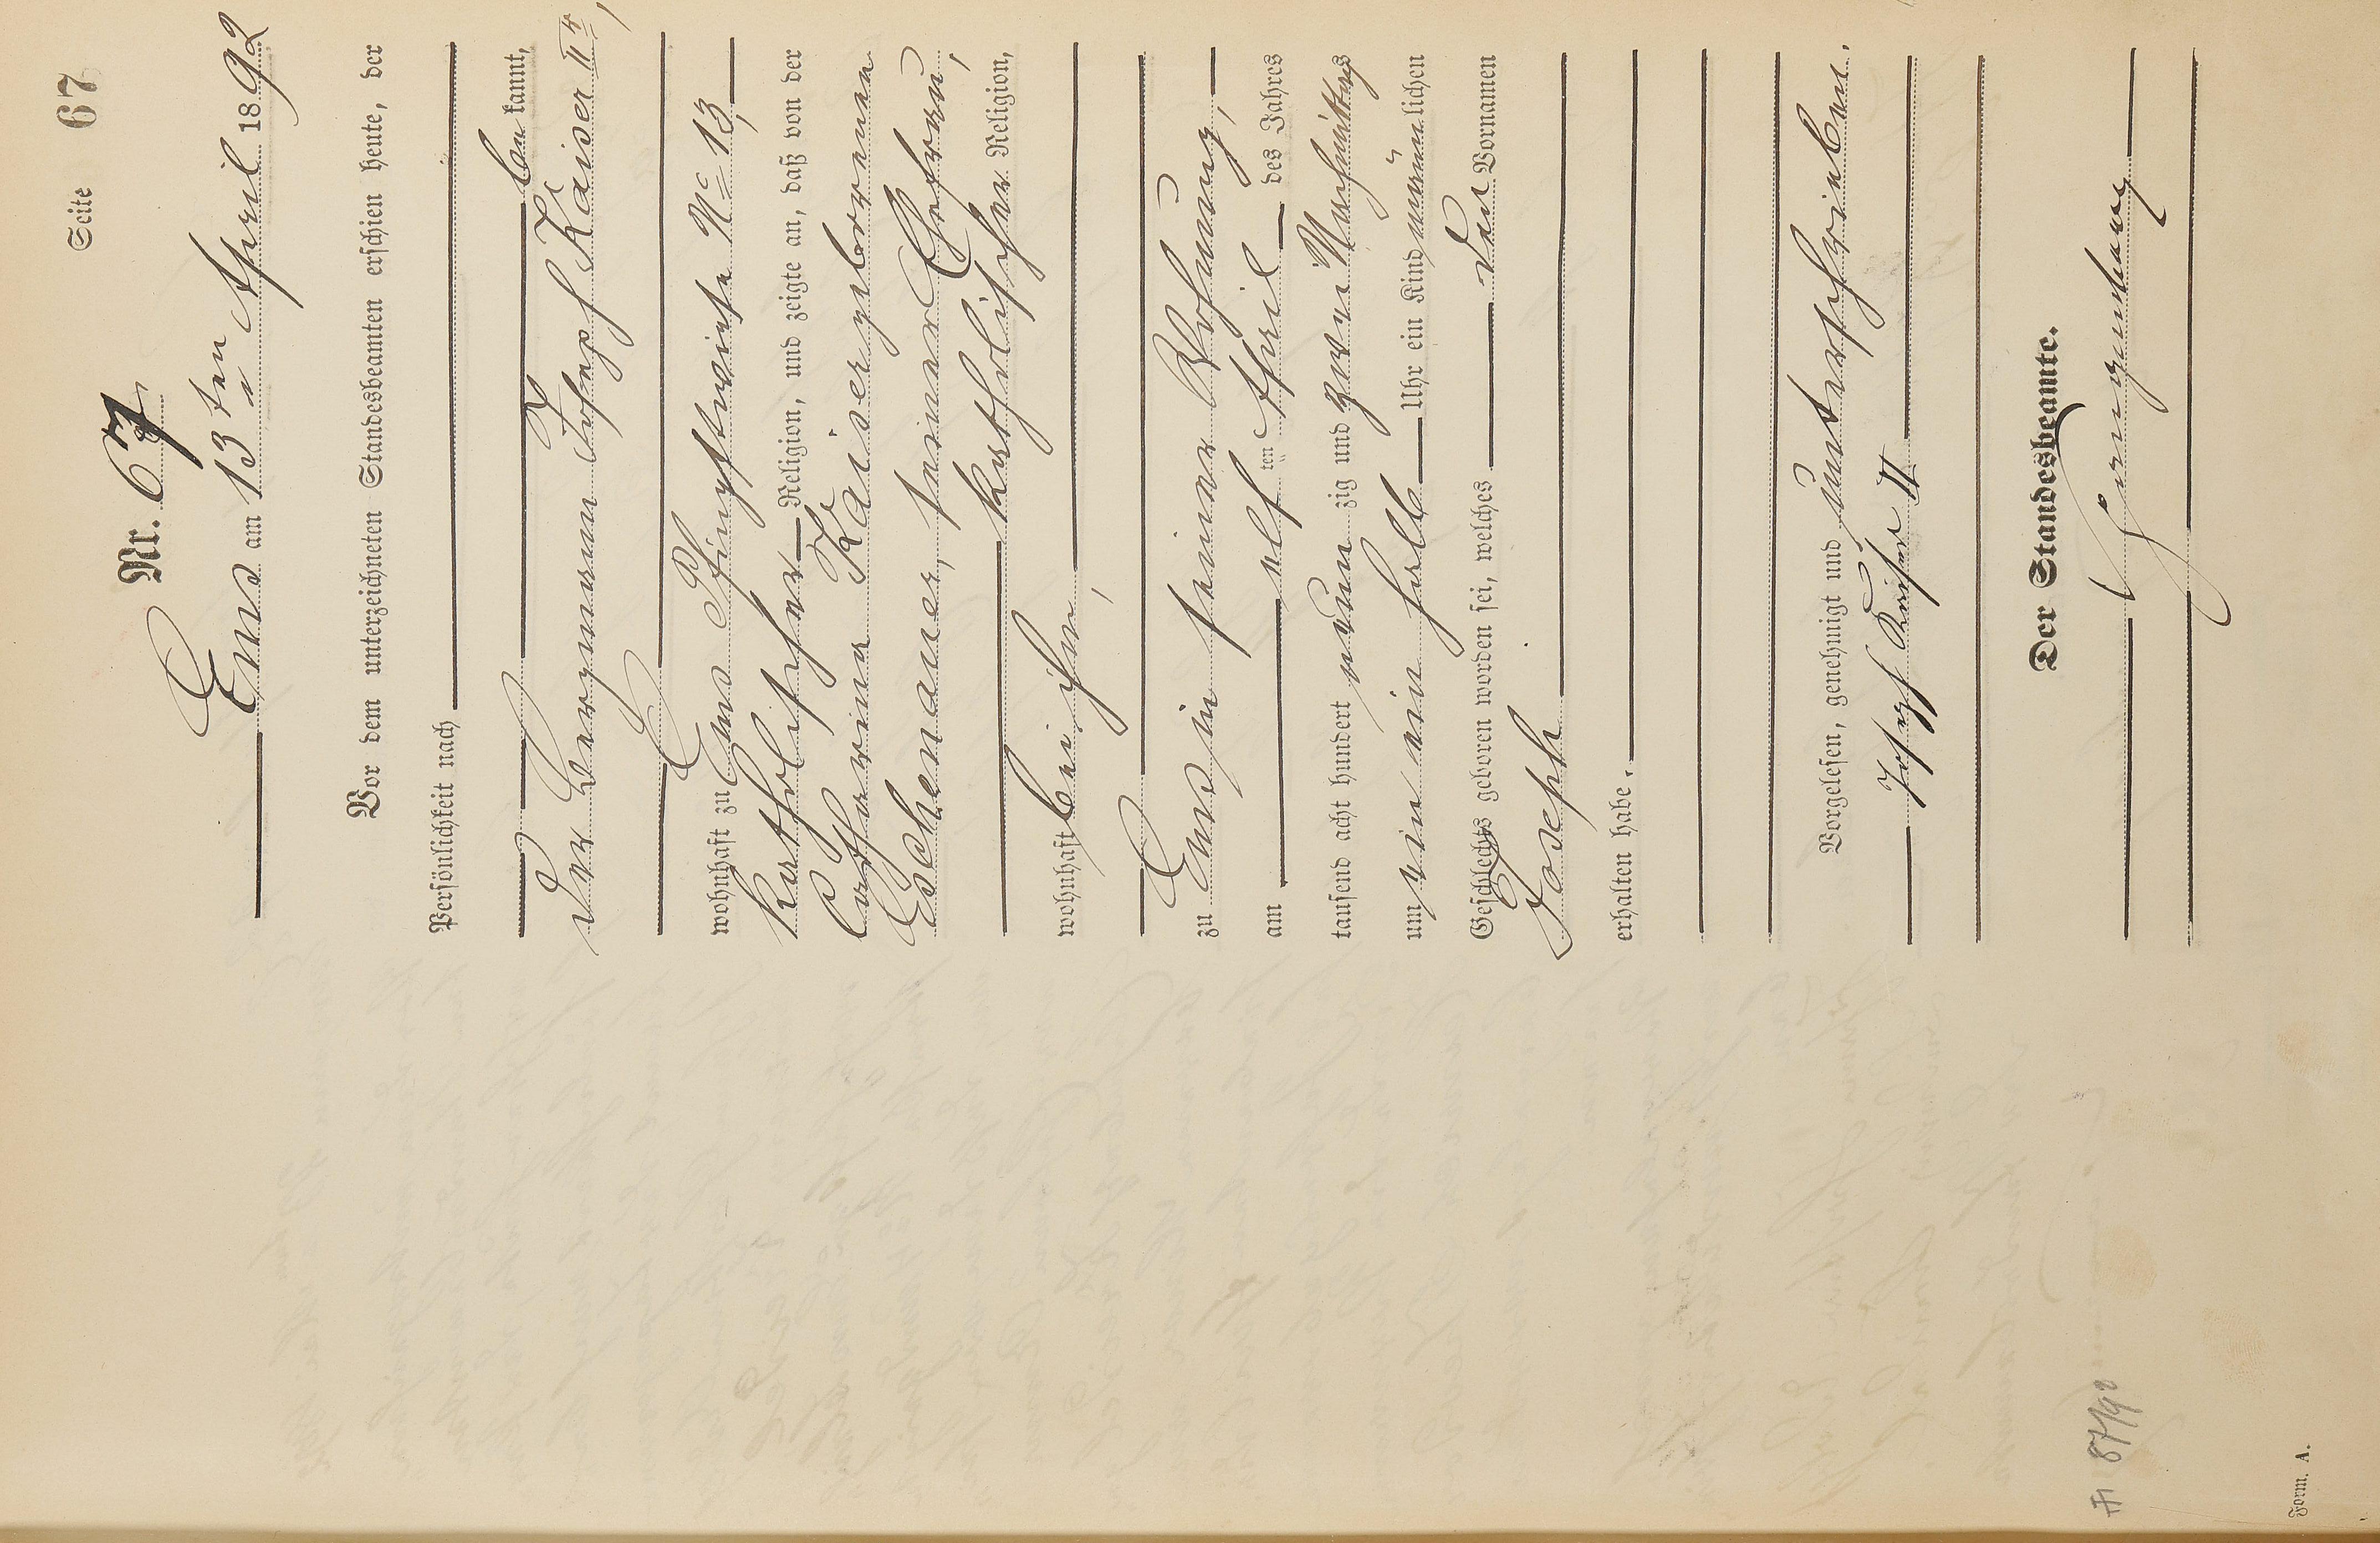 Seite 67
Nr. 67
Ems am 13ten April 1892
Vor dem unterzeichneten Standesbeamten erschien heute, der
Persönlichkeit nach
bekannt,
der Bergmann Joseph Kaiser IIr,
wohnhaft zu Ems Pfingstwiese No 13,
katholischer Religion, und zeigte an, daß von der
Catharina Kaiser geborenen
Eschenauer, seiner Ehefrau,
katholischer Religion,
wohnhaft bei ihm,
zu Ems in seiner Wohnung,
am elf ten April des Jahres
tausend acht hundert neun zig und zwei Nachmittags
um ein halb Uhr ein Kind männlichen
Geschlechts geboren worden sei, welches den Vornamen
Joseph
erhalten habe.
Vorgelesen, genehmigt und unterschrieben.
Josef Kaiser II
Der Standesbeamte.
87/92
Form. A.